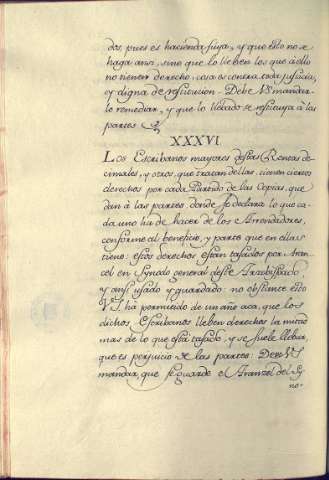 dos, pues es hacienda suya, y que esto no se
haga ansi, sino que lo lleben los que a ello
no tienen derecho, cosa es contra toda justicia,
y digna de reformacion. Debe V.S. mandar-
lo remediar, y que lo llebado se restituya à las
partes
XXXVI.
Los Escribanos mayores destas Rentas de-
cimales, y otros, que tratan de ellas, tienen ciertos
derechos por cada Partido de las Copias, que
dan à las partes donde se declara lo que ca-
da uno ha de hacer de los Arrendadores,
conforme al beneficio, y parte que en ellas
tiene: estos derechos estan tasados por Aran-
cel en Synodo general deste Arzobispado,
y ansi usado y guardado: no obstante esto
V.S. ha permitido de un año aca, que los
dichos Escribanos lleben derechos la mitad
mas de lo que esta tasado, y se suele llebar,
que es perjuicio de las partes. Debe V.S.
mandar, que se guarde el Aranzel del Sy-
no-